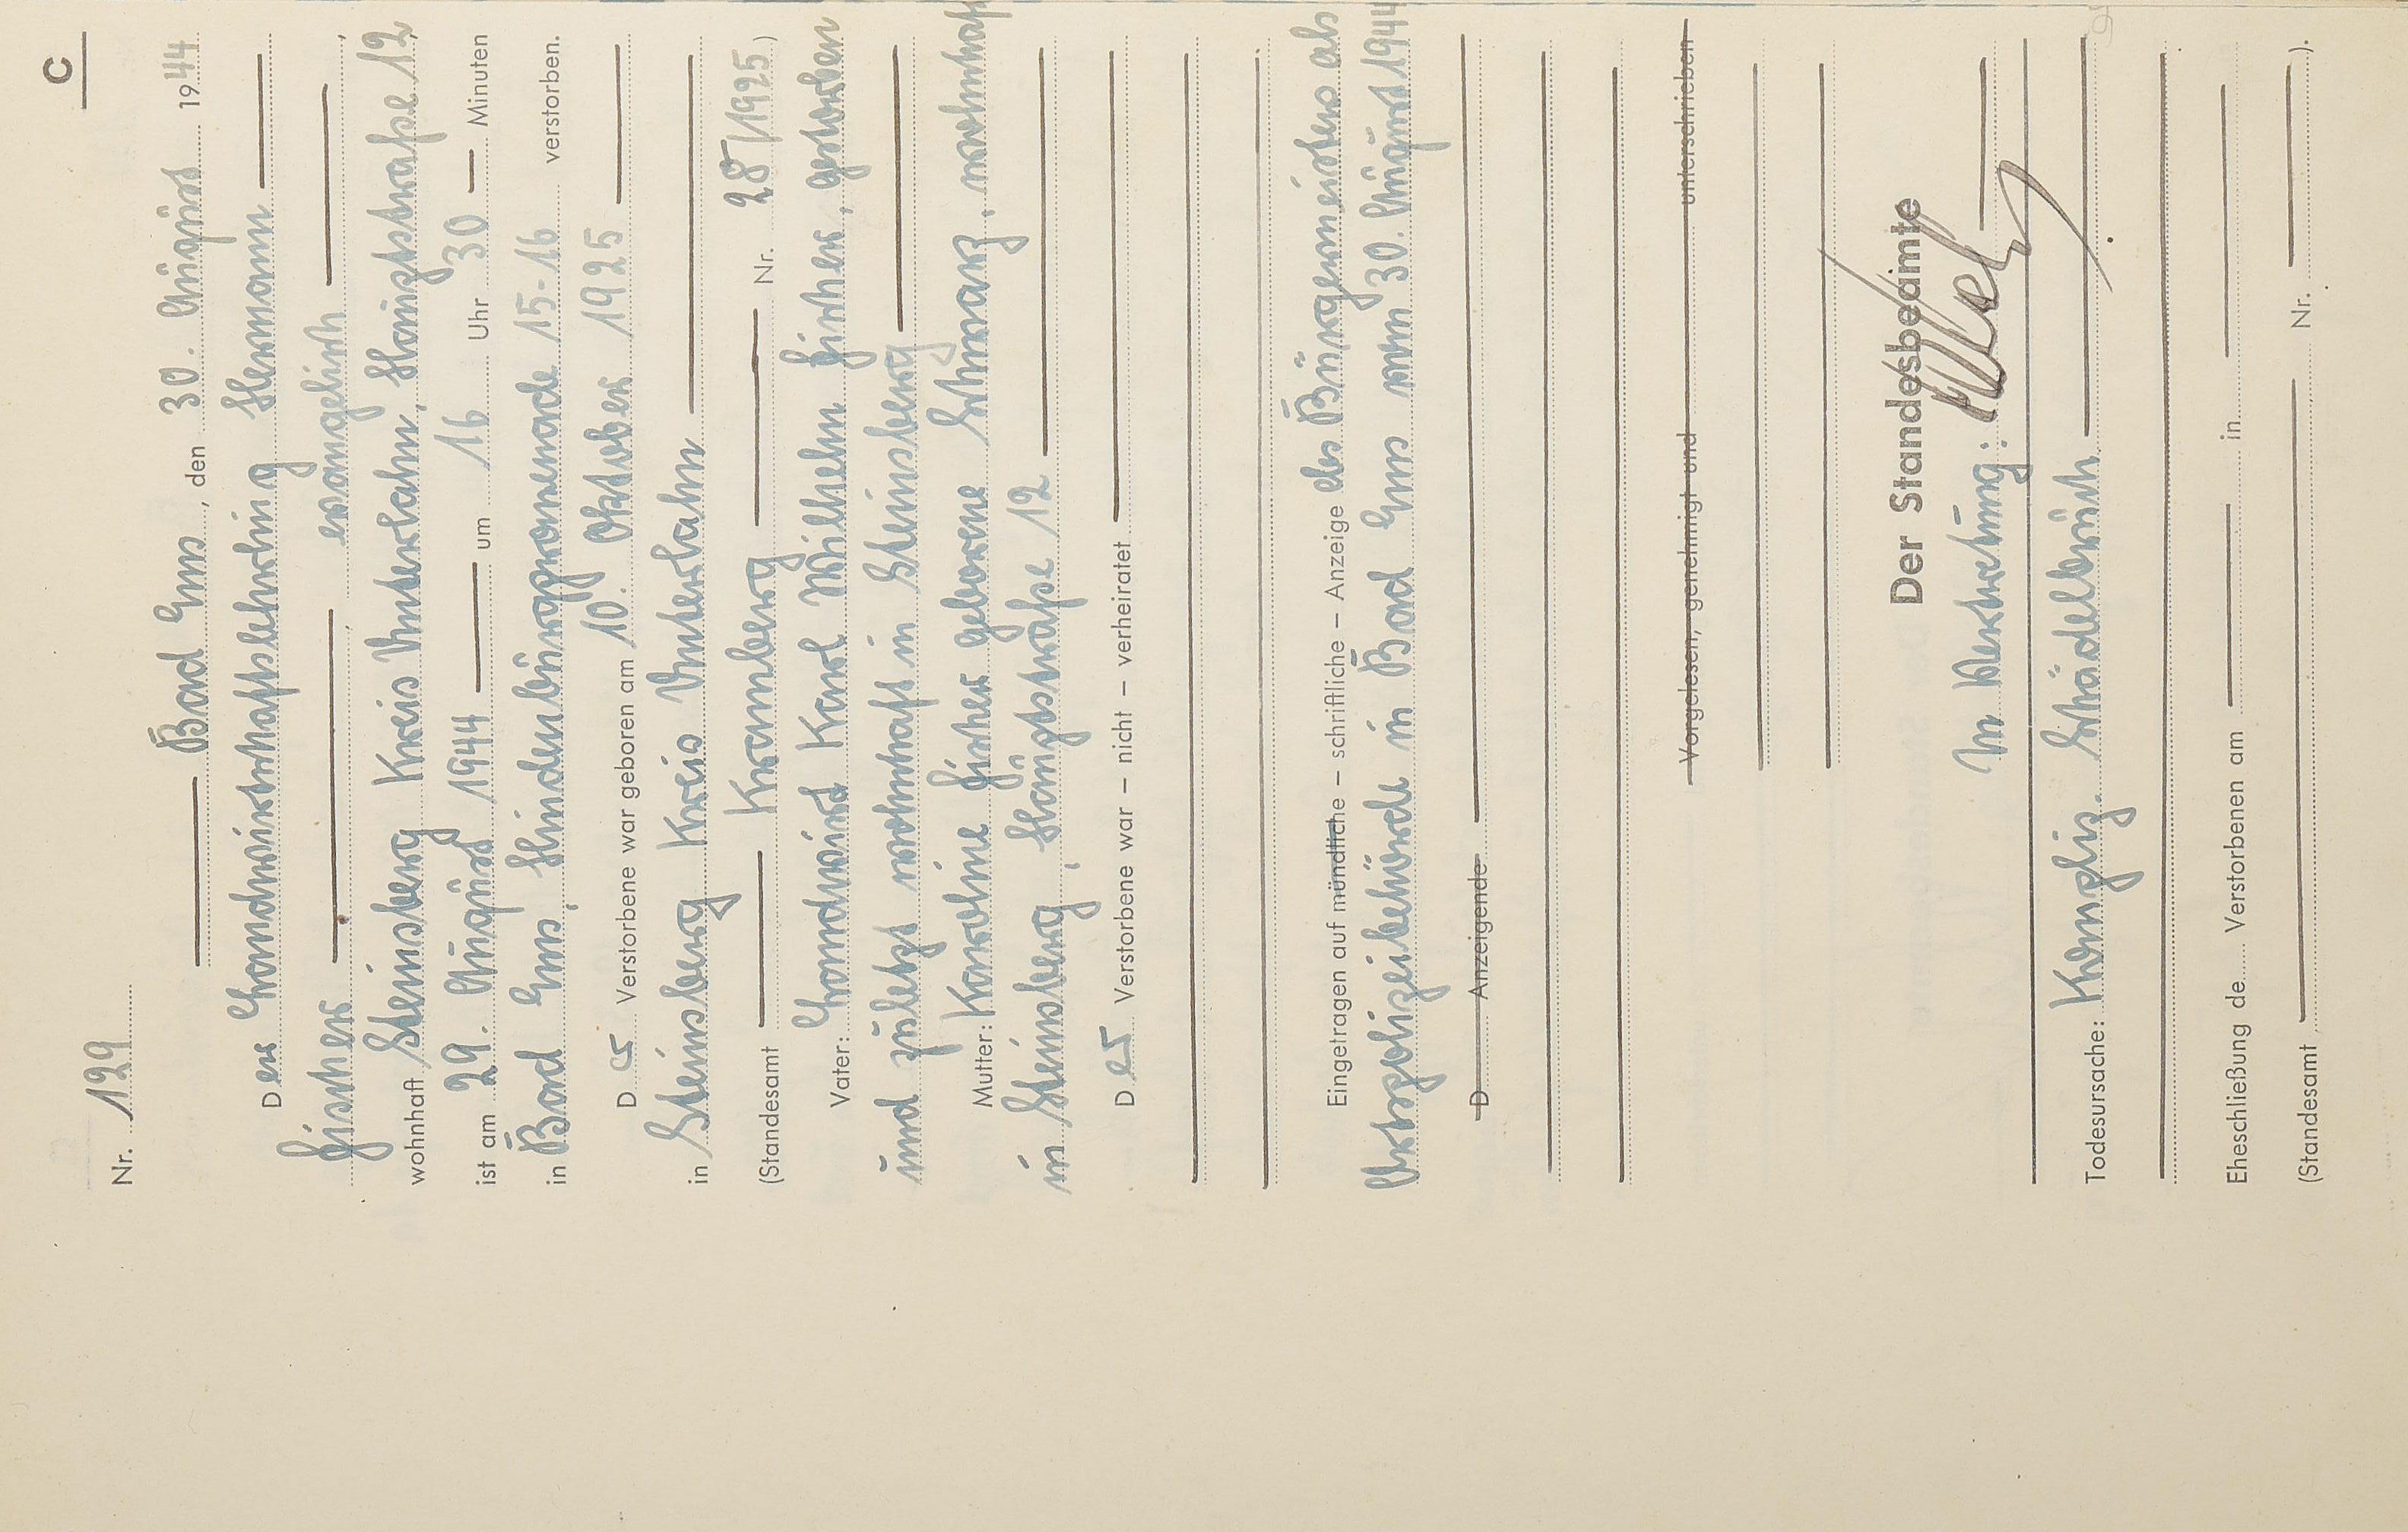 C
Nr. 129
Bad Ems, den 30. August 1944
Der Landwirtschaftslehrling Hermann
Fischer evangelisch,
wohnhaft Steinsberg Kreis Unterlahn, Hauptstraße 12,
ist am 29. August 1944 um 16 Uhr 30 Minuten
in Bad Ems, Hindenburgpromenade 15-16 verstorben.
Der Verstorbene war geboren am 10. Oktober 1925
in Steinsberg Kreis Unterlahn
(Standesamt Kramberg Nr. 28/1925)
Vater: Landwirt Karl Wilhelm Fischer, gestorben
und zuletzt wohnhaft in Steinsberg
Mutter: Karoline Fischer geborene Schwarz, wohnhaft
in Steinsberg, Hauptstraße 12
Der Verstorbene war – nicht – verheiratet
Eingetragen auf mündliche – schriftliche – Anzeige des Bürgermeisters als
Ortspolizeibehörde in Bad Ems vom 30. August 1944
D Anzeigende
Vorgelesen, genehmigt und unterschrieben
Der Standesbeamte
In Vertretung:
Todesursache: Kompliz. Schädelbruch
Eheschließung de Verstorbenen am in
(Standesamt Nr. ).